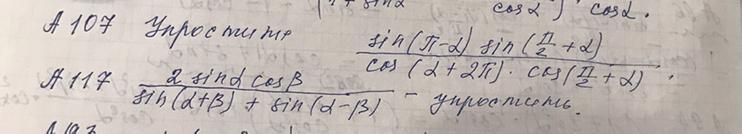 1 + sinα cosα ) cosα.
A 107 Упростить sin(π-α) sin(π/2 + α) / cos(α+2π) · cos(π/2 + α) .
A 117 2 sinα cosβ / sin(α+β) + sin(α-β) - упростить.